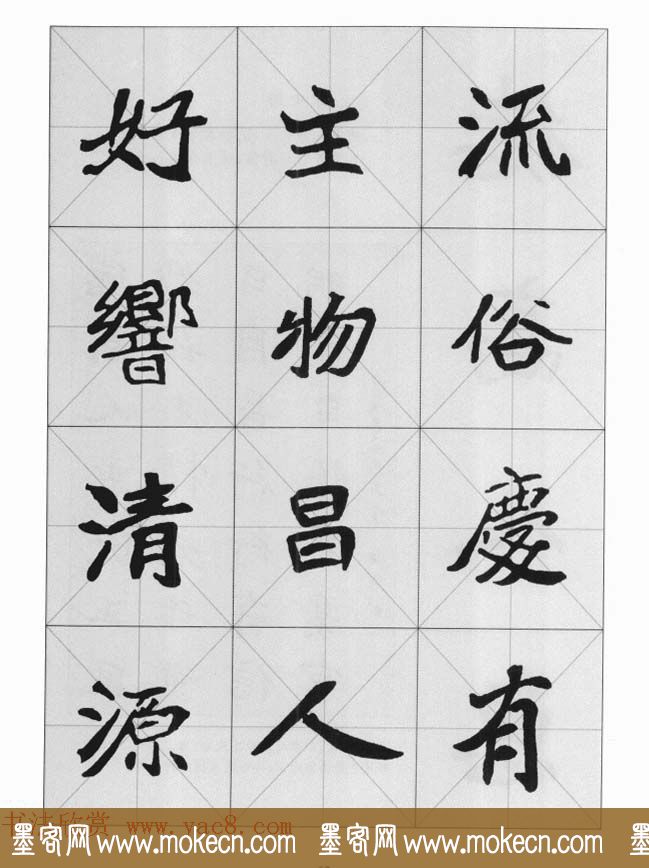 流俗慶有
主物昌人
好響清源
书法欣赏 www.yac8.com
墨客网 www.mokecn.com 墨客网 www.mokecn.com